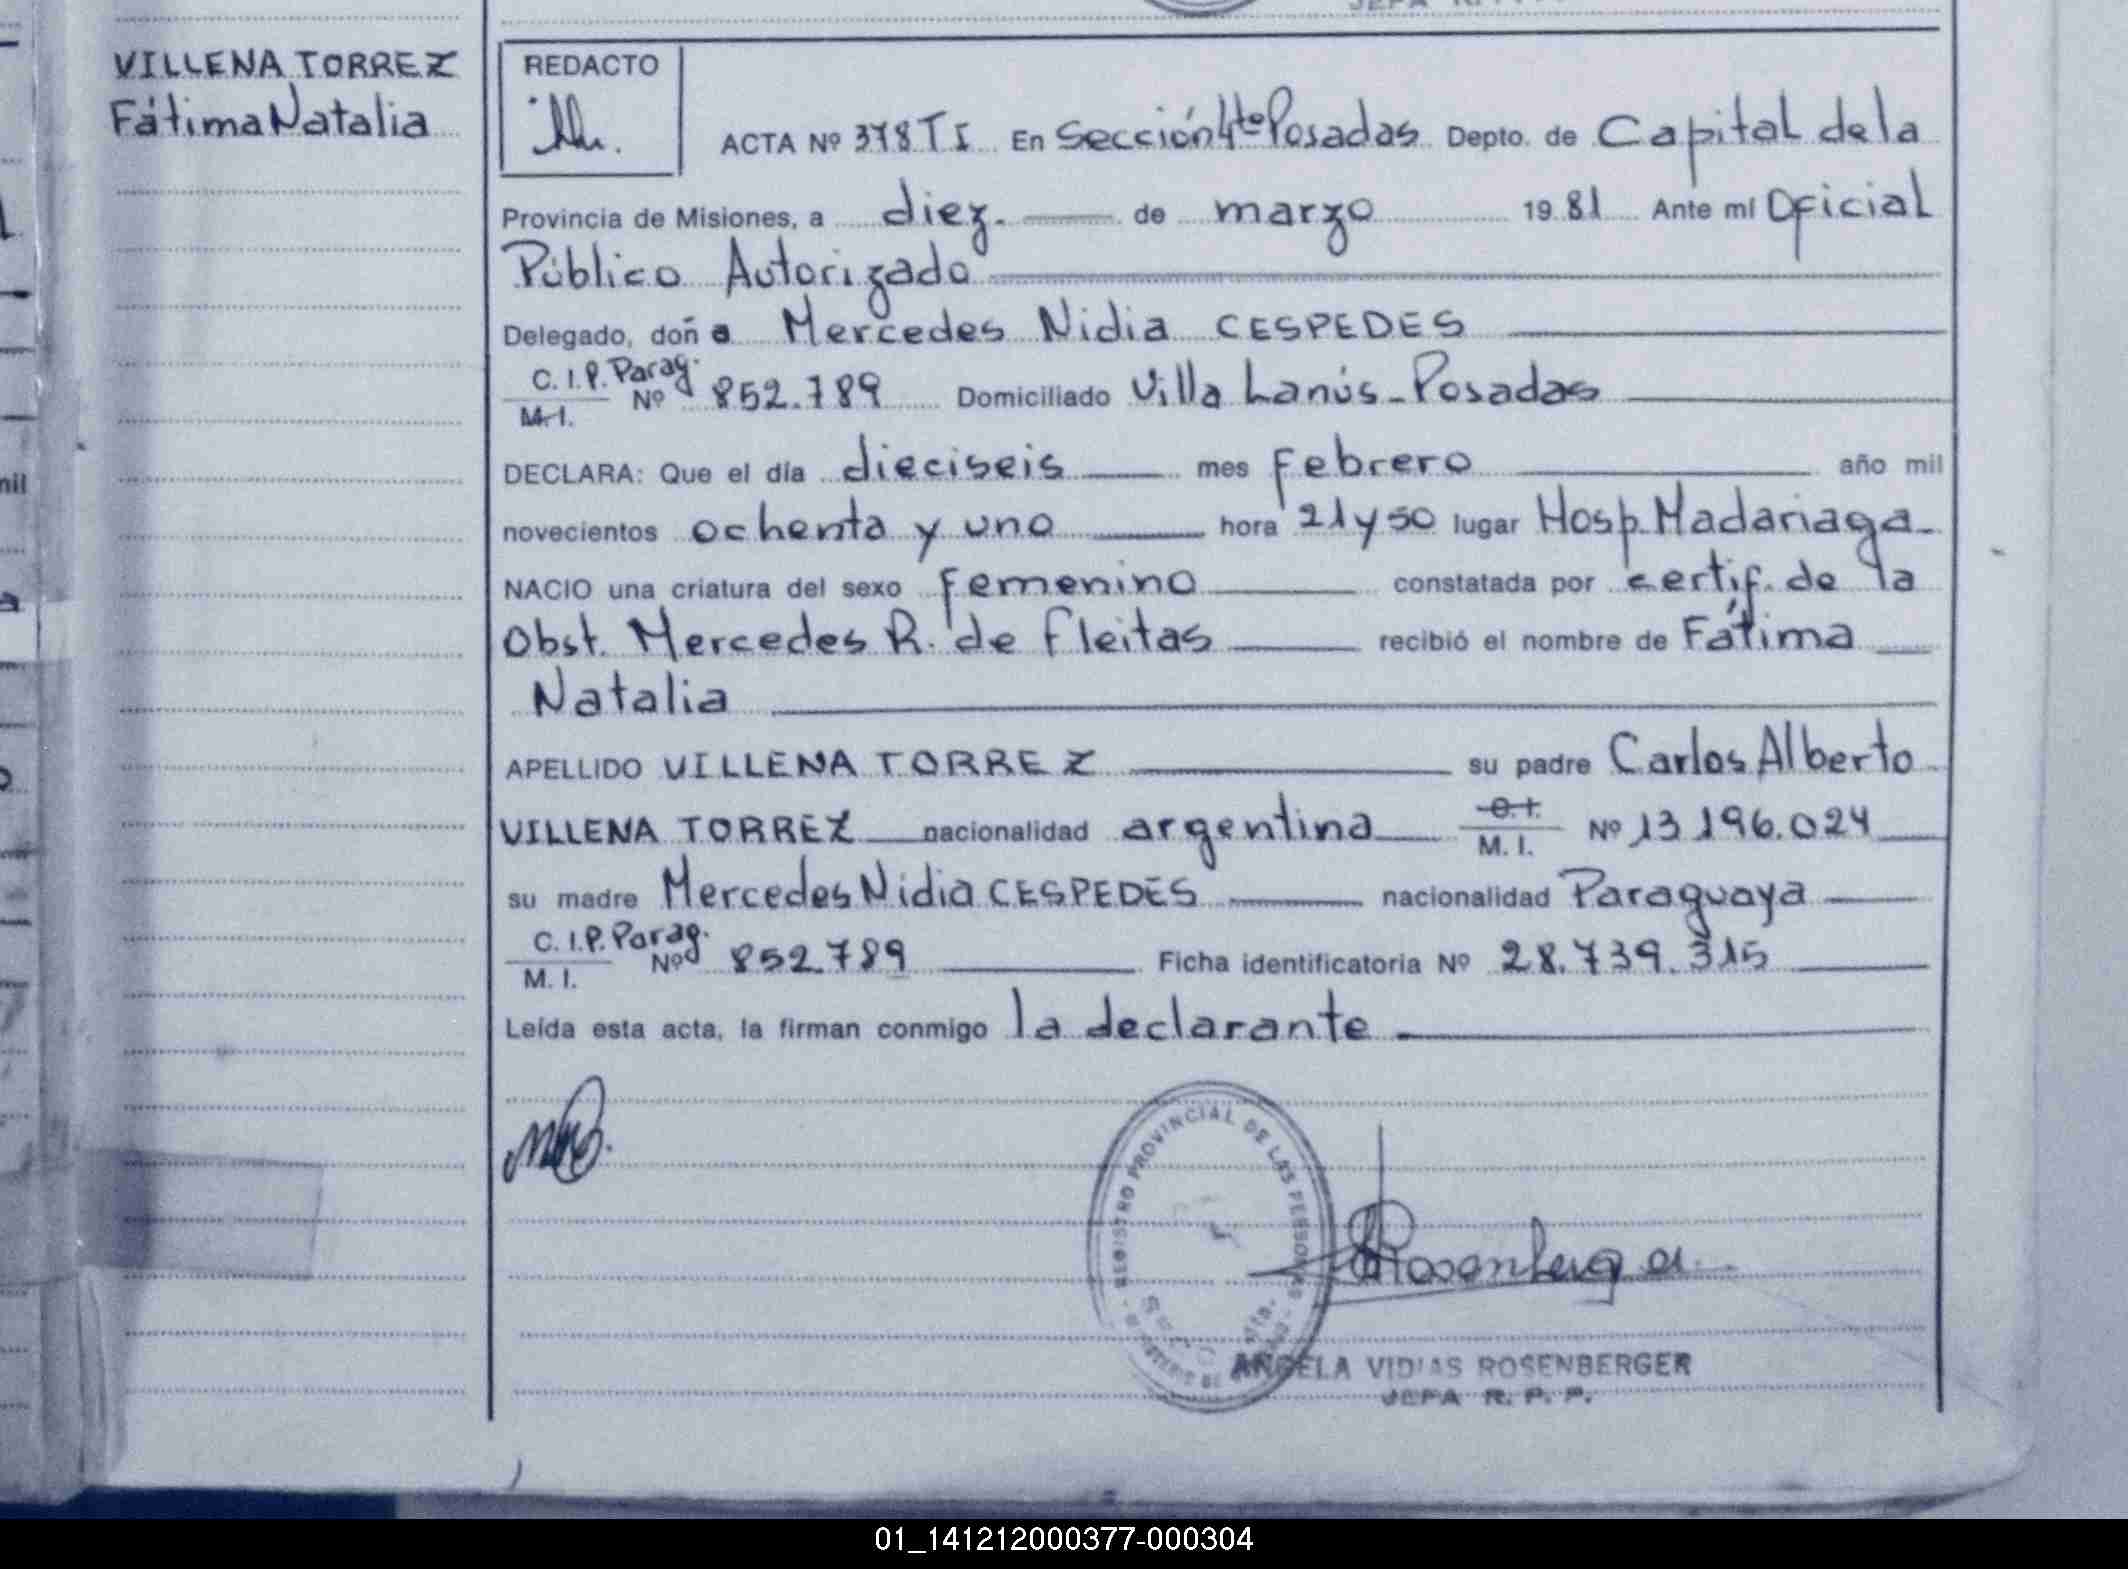 VILLENA TORREZ
Fátima Natalia
REDACTO
ACTA Nº 378 T I En Sección 4ta Posadas Depto. de Capital de la
Provincia de Misiones, a diez. de marzo 19 81 Ante mí Oficial
Público Autorizado
Delegado, doña Mercedes Nidia CESPEDES
C.I.P. Parag.
M.I. Nº 852.789 Domiciliado Villa Lanús - Posadas
DECLARA: Que el día dieciseis mes Febrero año mil
novecientos ochenta y uno hora 21 y 50 lugar Hosp. Madariaga
NACIO una criatura del sexo Femenino constatada por certif. de la
Obst. Mercedes R. de Fleitas recibió el nombre de Fátima
Natalia
APELLIDO VILLENA TORREZ su padre Carlos Alberto
VILLENA TORREZ nacionalidad argentina M. I. Nº 13 196.024
su madre Mercedes Nidia CESPEDES nacionalidad Paraguaya
C.I.P. Parag.
M. I. Nº 852.789 Ficha identificatoria Nº 28.739.315
Leída esta acta, la firman conmigo la declarante
REGISTRO PROVINCIAL DE LAS PERSONAS
Rosenberger
ANGELA VIDIAS ROSENBERGER
JEFA R. P. P.
01_141212000377-000304